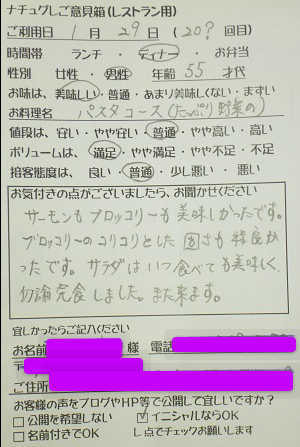 ナチュグしご意見箱(レストラン用)
ご利用日 1月 29日 (20? 回目)
時間帯 ランチ ・ ディナー ・ お弁当
性別 女性 ・ 男性 年齢 55 才代
お味は、美味しい・普通・あまり美味しくない・まずい
お料理名 パスタコース(たっぷり野菜の)
値段は、安い・やや安い・普通・やや高い・高い
ボリュームは、満足・やや満足・やや不足・不足
接客態度は、 良い・普通・少し悪い ・ 悪い
お気付きの点がございましたら、お聞かせください
サーモンもブロッコリーも美味しかったです。
ブロッコリーのコリコリとした固さも結良か
ったです。サラダはいつ食べても美味しく、
勿論完食しました。また来ます。
宜しかったらご記入ください
お名前 様 電話
ご住所
お客様の声をブログやHP等で公開して宜しいですか?
□公開を希望しない ☑イニシャルならOK
□名前付きでOK し点でチェックお願いします